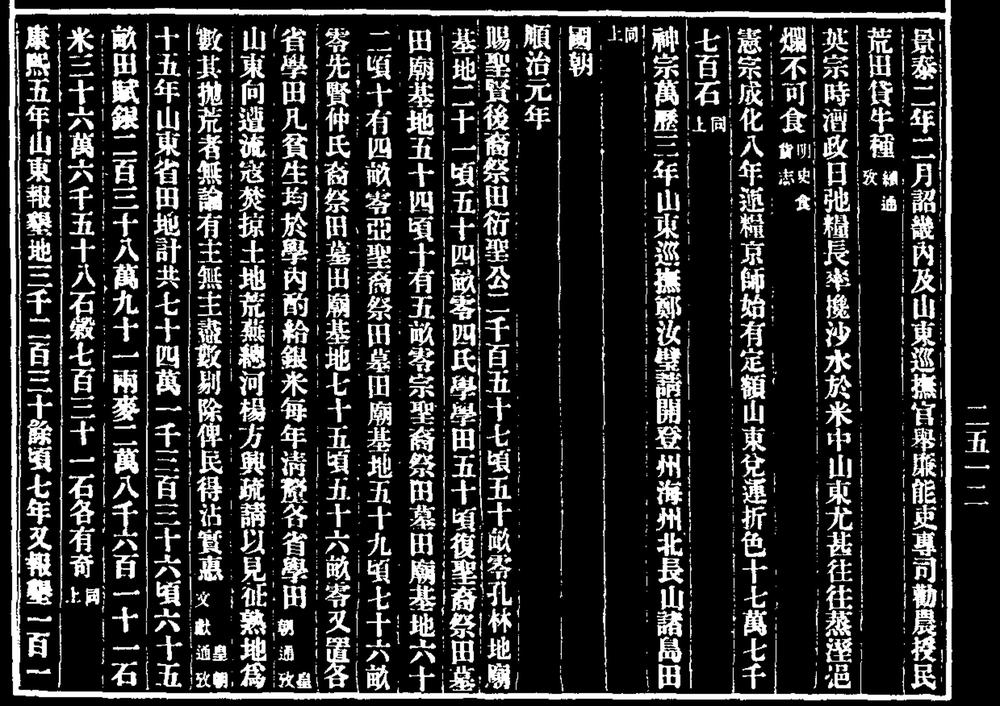 景泰二年二月詔畿內及山東巡撫官舉廉能吏專司勸農授民
荒田貸牛種續通攷
英宗時漕政日弛糧長率攙沙水於米中山東尤甚往往蒸溼浥
爛不可食明史食貨志
憲宗成化八年運糧京師始有定額山東兌運折色十七萬七千
七百石同上
神宗萬歷三年山東巡撫鄭汝璧請開登州海州北長山諸島田
同上
國朝
順治元年
賜聖賢後裔祭田衍聖公二千百五十七頃五十畝零孔林地廟
基地二十一頃五十四畝零四氏學學田五十頃復聖裔祭田墓
田廟基地五十四頃十有五畝零宗聖裔祭田墓田廟基地六十
二頃十有四畝零亞聖裔祭田墓田廟基地五十九頃七十六畝
零先賢仲氏裔祭田墓田廟基地七十五頃五十六畝零又置各
省學田凡貧生均於學內酌給銀米每年清釐各省學田皇朝通攷
山東向遭流寇焚掠土地荒蕪總河楊方興疏請以見征熟地爲
數其拋荒者無論有主無主盡數剔除俾民得沾實惠皇朝文獻通攷
十五年山東省田地計共七十四萬一千三百三十六頃六十五
畝田賦銀二百三十八萬九十一兩麥二萬八千六百一十一石
米三十六萬六千五十八石穀七百三十一石各有奇同上
康熙五年山東報墾地三千二百三十餘頃七年又報墾一百一
二五一二